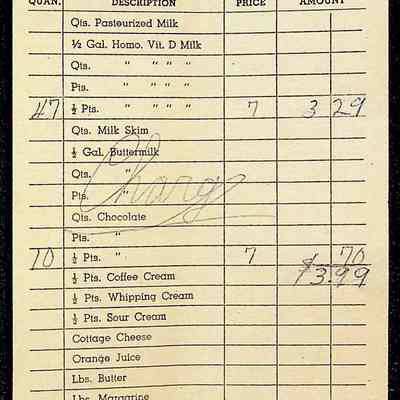 QUAN. DESCRIPTION PRICE AMOUNT
Qts. Pasteurized Milk
½ Gal. Homo. Vit. D Milk
Qts. " " " "
Pts. " " " "
47 ½ Pts. " " " " 7 3 29
Qts. Milk Skim
½ Gal. Buttermilk
Qts. "
Pts. "
Charg
Qts. Chocolate
Pts. "
10 ½ Pts. " 7 70
½ Pts. Coffee Cream $3.99
½ Pts. Whipping Cream
½ Pts. Sour Cream
Cottage Cheese
Orange Juice
Lbs. Butter
Lbs. Margarine